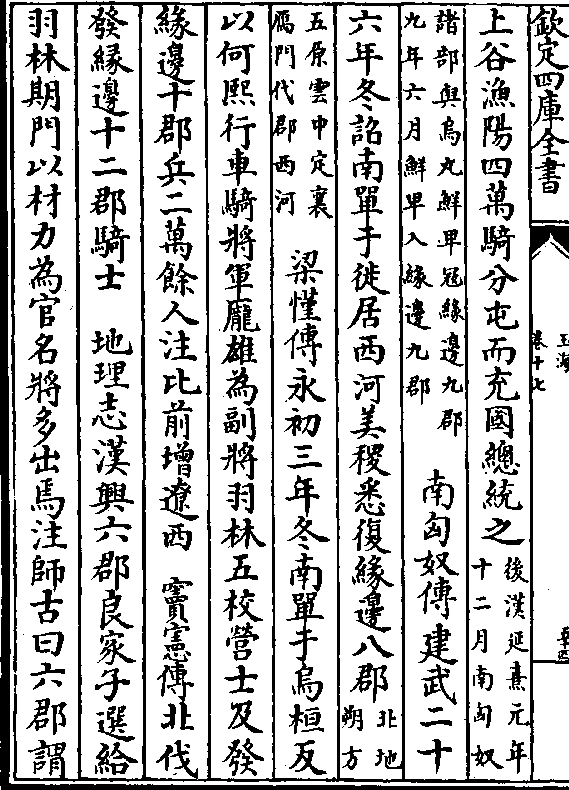 欽定四庫全書
玉海
卷十七
上谷漁陽四萬騎分屯而充國總統之
後漢延熹元年
十二月南匈奴
諸部與烏丸鮮卑冦緣邊九郡
九年六月鮮卑入緣邊九郡
南匈奴傳建武二十
六年冬詔南單于徙居西河美稷悉復緣邊八郡
北地
朔方
五原雲中定襄
鴈門代郡西河
梁慬傳永初三年冬南單于烏桓反
以何熙行車騎將軍龐雄為副將羽林五校營士及發
緣邊十郡兵二萬餘人注比前增遼西　竇憲傳北伐
發緣邊十二郡騎士　地理志漢興六郡良家子選給
羽林期門以材力為官名將多出焉注師古曰六郡謂